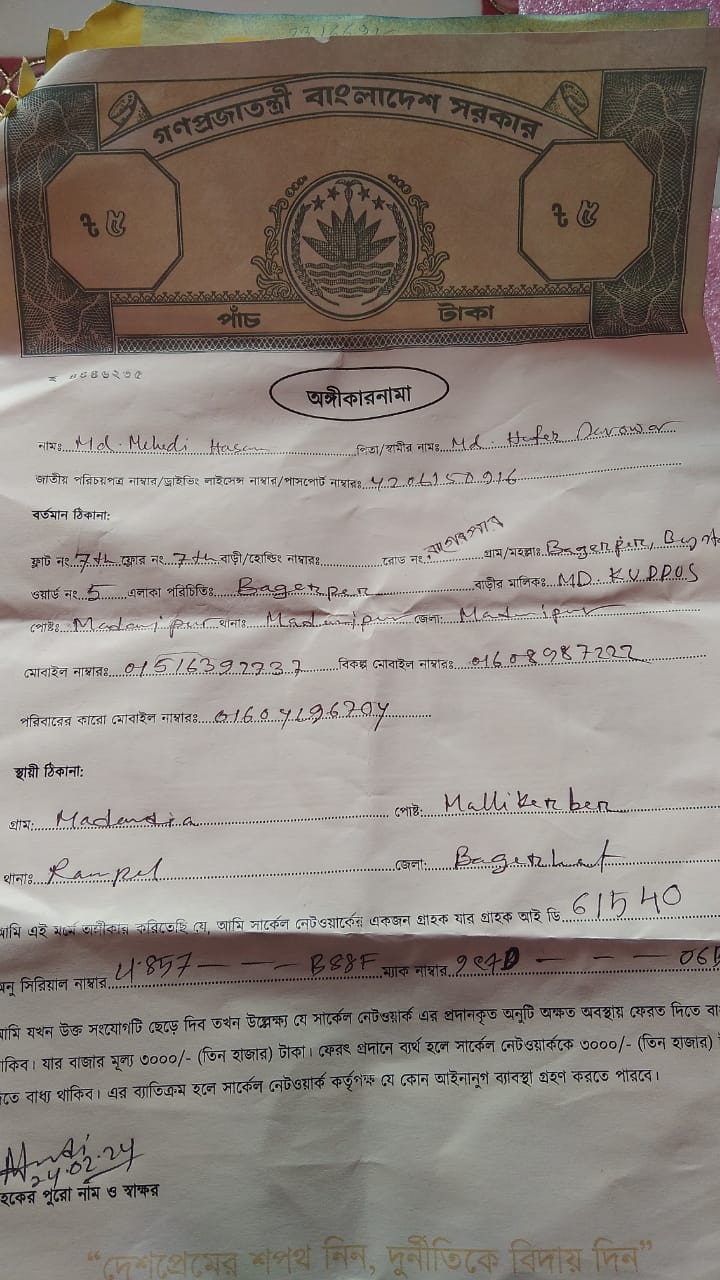 গণপ্রজাতন্ত্রী বাংলাদেশ সরকার
৳ ৫ ৳ ৫
পাঁচ টাকা
অঙ্গীকারনামা
নামঃ Md. Mehedi Hasan পিতা/স্বামীর নামঃ Md. Hafez
জাতীয় পরিচয়পত্র নাম্বার/ড্রাইভিং লাইসেন্স নাম্বার/পাসপোর্ট নাম্বারঃ
বর্তমান ঠিকানা:
ফ্লাট নং 7th ফ্লোর নং 7th বাড়ী/হোল্ডিং নাম্বারঃ রোড নং গ্রাম/মহল্লাঃ
ওয়ার্ড নং 5 এলাকা পরিচিতিঃ বাড়ীর মালিকঃ MD. KUDDOS
পোষ্টঃ Madanipur থানাঃ Madanipur জেলা: Madanipur
মোবাইল নাম্বারঃ 01516392737 বিকল্প মোবাইল নাম্বারঃ 01608987222
পরিবারের কারো মোবাইল নাম্বারঃ
স্থায়ী ঠিকানা:
গ্রাম: পোষ্ট:
থানাঃ Rampal জেলা: Bagerhat
আমি এই মর্মে অঙ্গীকার করিতেছি যে, আমি সার্কেল নেটওয়ার্কের একজন গ্রাহক যার গ্রাহক আই ডি 61540
অনু সিরিয়াল নাম্বার 4857 — — — B88F ম্যাক নাম্বার — — —
আমি যখন উক্ত সংযোগটি ছেড়ে দিব তখন উল্লেখ্য যে সার্কেল নেটওয়ার্ক এর প্রদানকৃত অনুটি অক্ষত অবস্থায় ফেরত দিতে
থাকিব। যার বাজার মূল্য ৩০০০/- (তিন হাজার) টাকা। ফেরৎ প্রদানে ব্যর্থ হলে সার্কেল নেটওয়ার্ককে ৩০০০/- (তিন হাজার)
দিতে বাধ্য থাকিব। এর ব্যতিক্রম হলে সার্কেল নেটওয়ার্ক কর্তৃপক্ষ যে কোন আইনানুগ ব্যবস্থা গ্রহণ করতে পারবে।
24.02.24
গ্রাহকের পুরো নাম ও স্বাক্ষর
“দেশপ্রেমের শপথ নিন, দুর্নীতিকে বিদায় দিন”